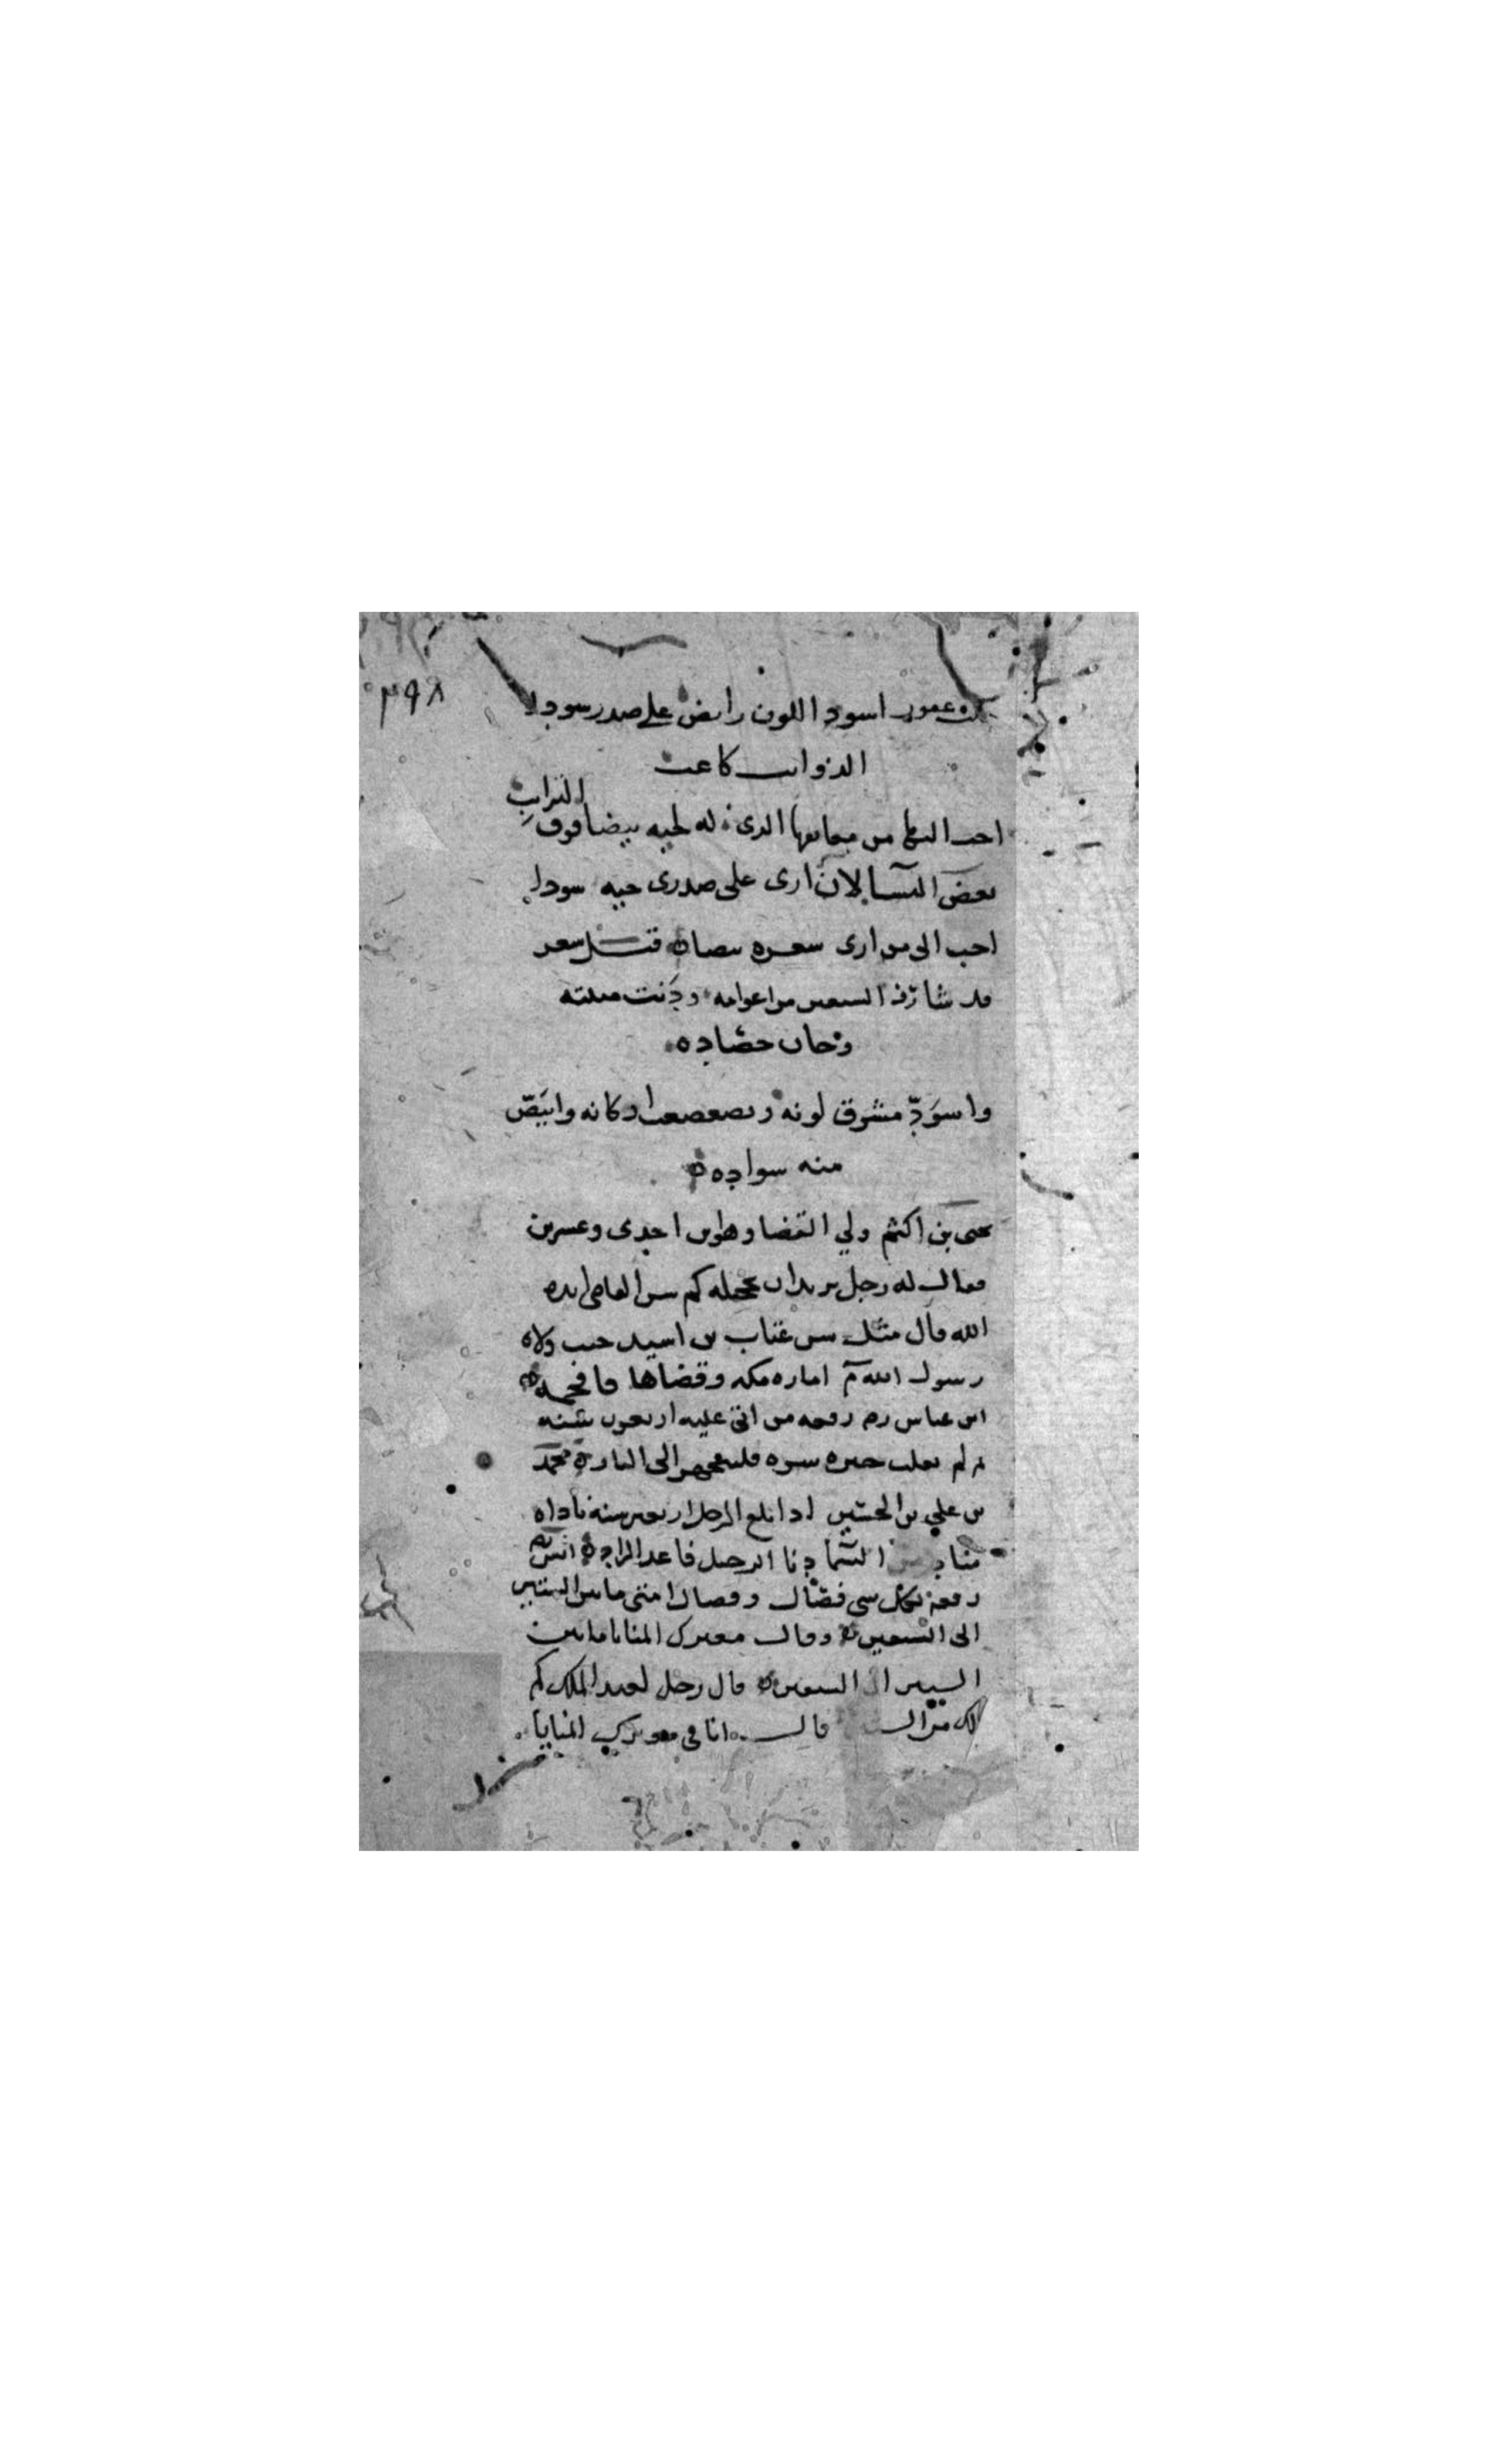 ٣٩٨
اسود اللون راىض على صدر سودا
الذوايب كاعب
الترايب
احب الىها من معانقها الذى له لحيه بيضا فوق
بعض النسا لان ارى على صدرى حيه سودا
احب الى من ارى سعره بيضاه قىل سعر
قد شارف السبعين من اعوامه ودنت منيته
وحان حصاده
واسود مشرق لونه وتصعصعت اركانه وابيض
منه سواده
يحيى بن اكثم ولي القضا وهو ابن احدى وعشرين
فقال له رجل يريد ان يخجله كم سن القاضى ايده
الله قال مثل سن عتاب بن اسيد حيث ولاه
رسول الله م اماره مكه وقضاها فافحمه
ابن عباس رم رفعه من اتى عليه اربعون سنه
ثم لم يغلب خيره شره فليتجهز الى النار محمد
بن علي بن الحسين اذا بلغ الرجل اربعين سنه ناداه
مناد من السما دنا الرحيل فاعد الزاد انس
رفعه لكل شى فصال وفصال امتى ما بين الستين
الى السبعين وقال معترك المنايا ما بين
الستين الى السبعين قال رجل لعبد الملك كم
لك من قال انا فى معترك المنايا